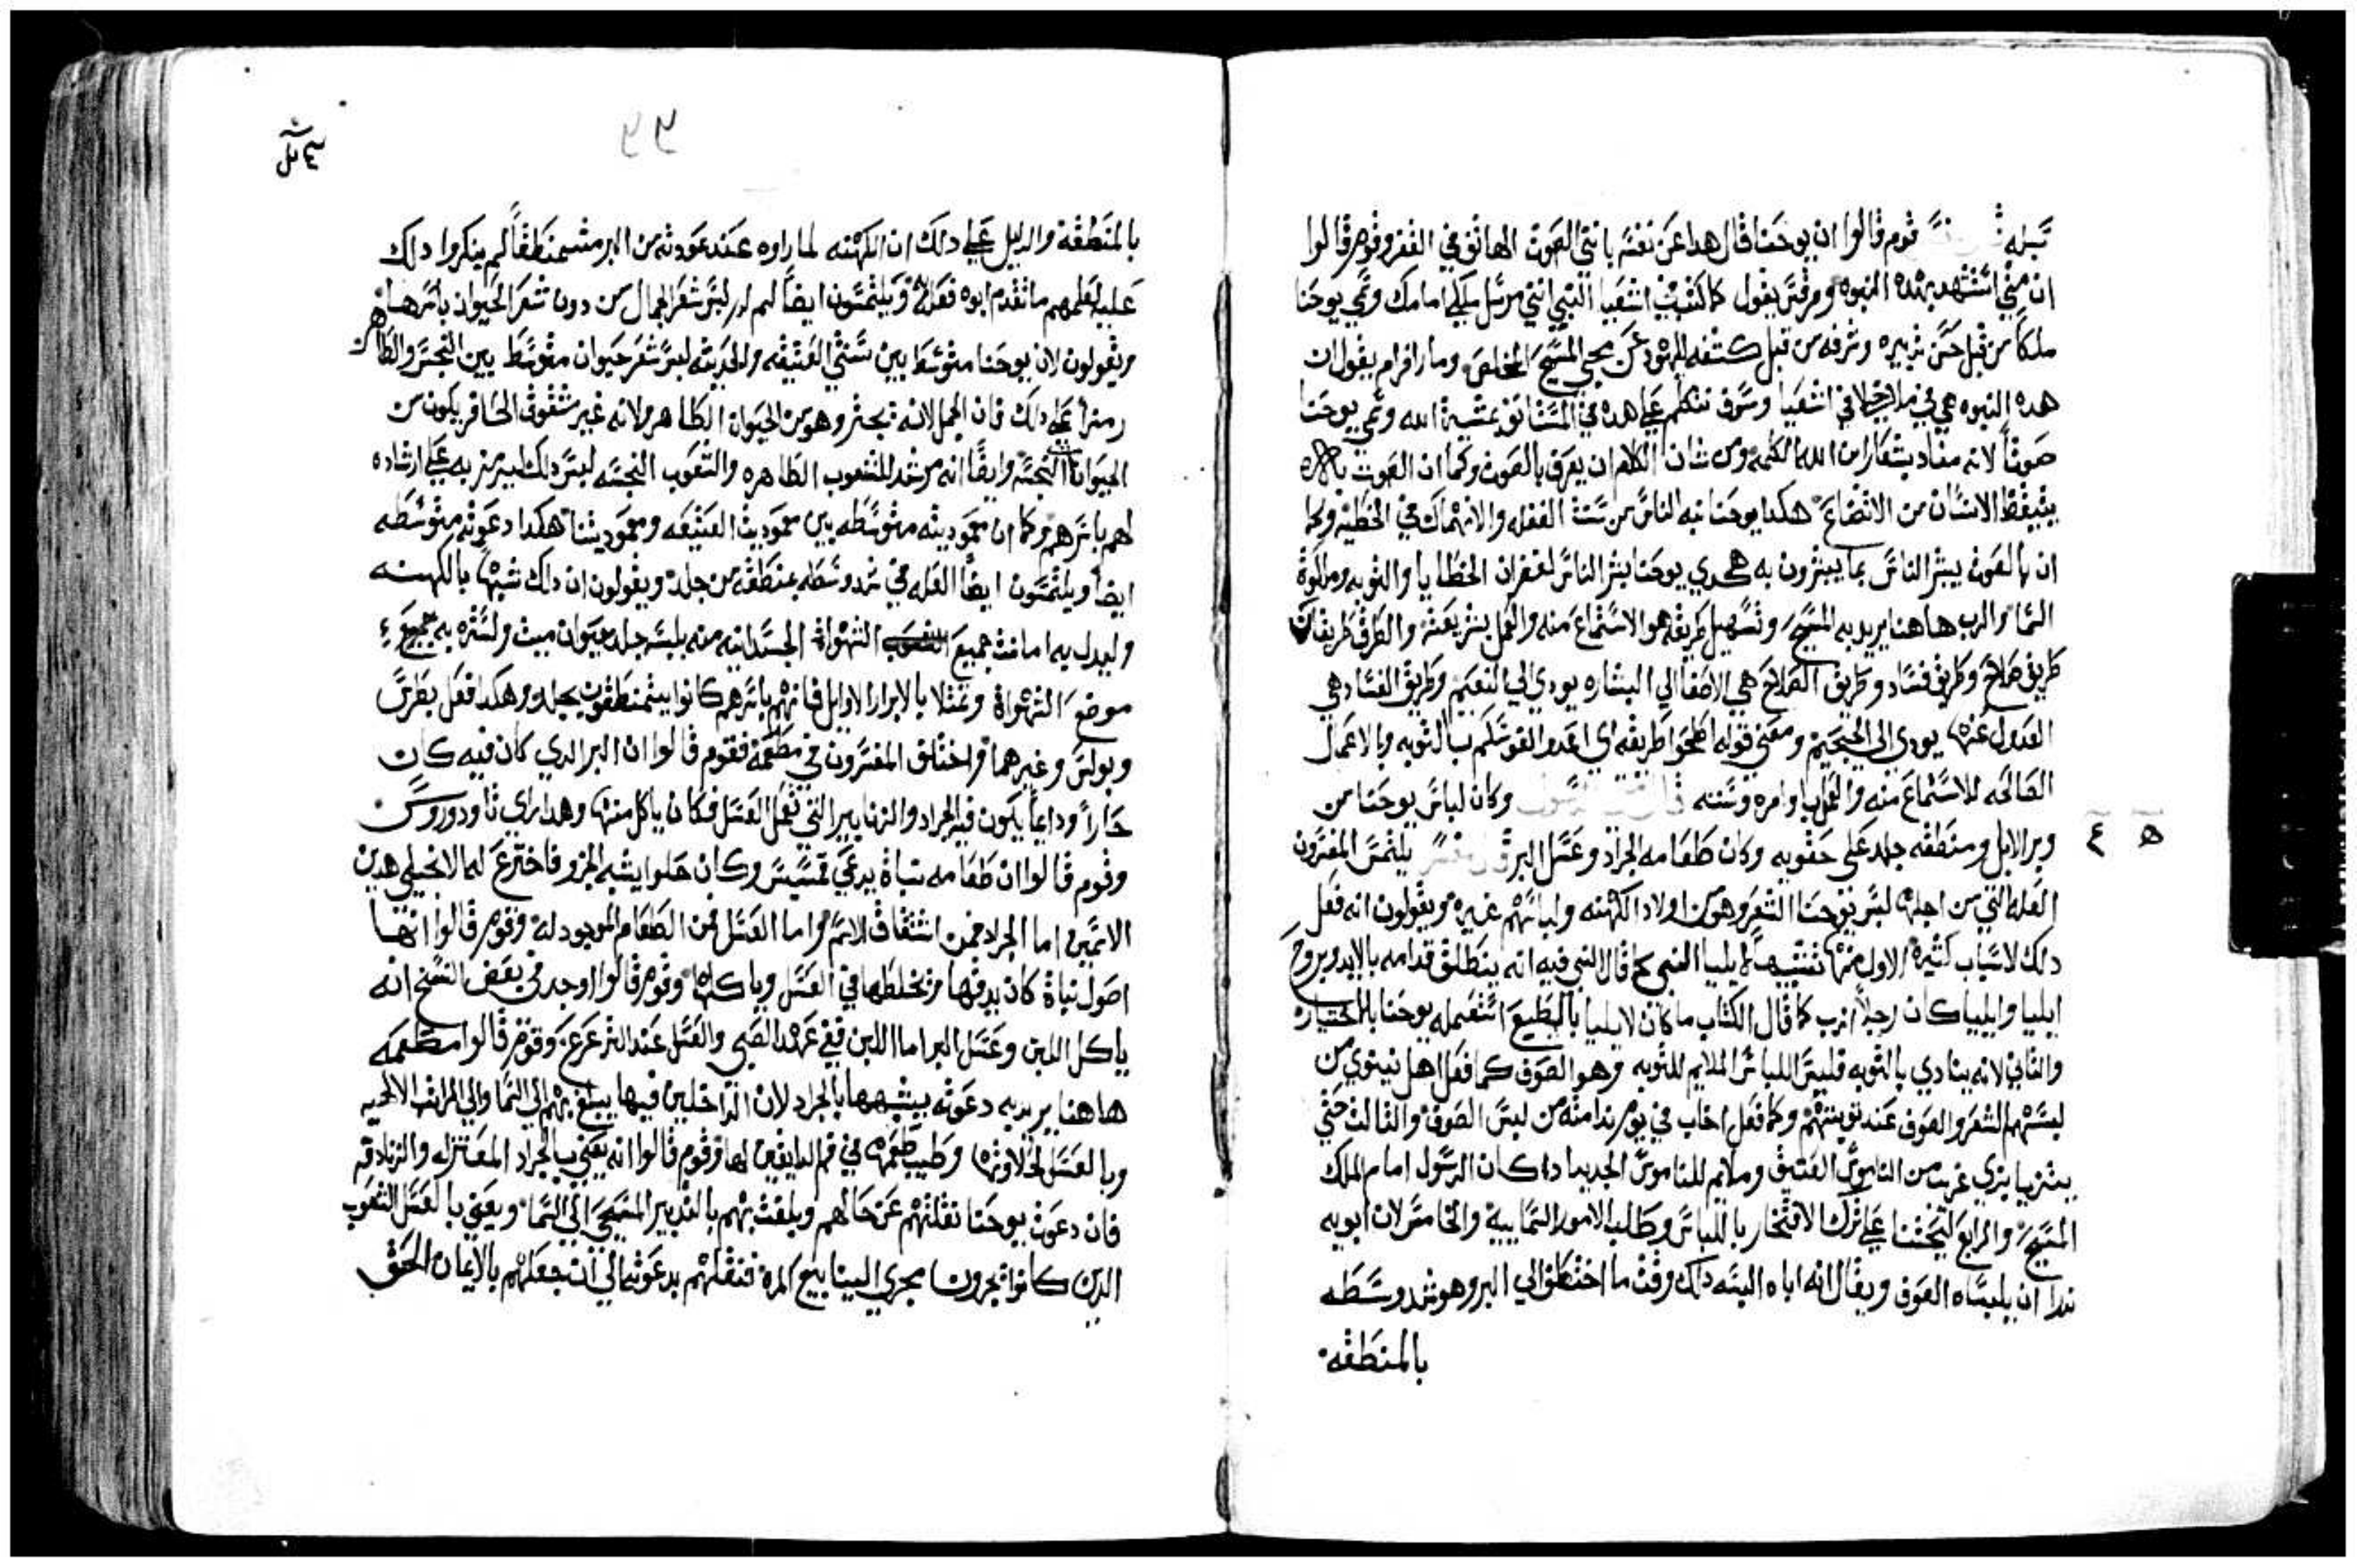 قوم قالوا ان يوحنا قال هدا عن نفسه بانني الصوت الهاتف في القفر وقوم قالوا
ان متي استشهد بهده النبوه ومرقس يقول كما كتب في اشعيا النبي انني مرسل ملكي امامك وسمي يوحنا
ملكا من قبل حسن تدبيره وشرفه من قبل كشفه لليهود عن مجي المسيح المخلص ومار افرام يقول ان
هده النبوه هي في ملاخيا لا في اشعيا وسوف نتكلم علي هده في المستانف بمشية الله وسمي يوحنا
صوتا لانه مناد بتقدم ابن الله الكلمه ومن شان الكلام ان يعرف بالصوت وكما ان الصوت
يتيقظ الانسان من الاضجاع هكدا يوحنا نبه الناس من سنة الغفله والانهماك في الخطيه وكما
ان بالصوت يبشر الناس بما يبشرون به هكدي يوحنا بشر الناس لغفران الخطايا والتوبه وملكوة
السما والرب هاهنا يريد به المسيح وتسهيل طريقه هو الاستماع منه والعمل بشريعته والطرق طريقان
طريق صلاح وطريق فساد وطريق الصلاح هي الاصغا الي البشاره يودي الي النعيم وطريق الفساد هي
العدول عنها يودي الي الجحيم ومعني قوله اصلحوا طريقه اي اعدوا نفوسكم بالتوبه وبالاعمال
الصالحه للاستماع منه والعمل باوامره وسننه وكان لباس يوحنا من
وبر الابل ومنطقه جلد علي حقويه وكان طعامه الجراد وعسل البر يلتمس المفسرون
ه ٤
العله التي من اجلها لبس يوحنا الشعر وهو من اولاد الكهنه ولباسهم غيره ويقولون انه فعل
دلك لاسباب كثيره الاول منها تشبيها لايليا النبي كما قال النبي فيه انه ينطلق قدامه بالايد وبروح
ايليا وايليا كان رجلا ازب كما قال الكتاب ما كان لايليا بالطبع استعمله يوحنا بالاختيار
والثاني لانه ينادي بالتوبه فلبس اللباس الملايم للتوبه وهو الصوف كما فعل اهل نينوي من
لبسهم الشعر والصوف عند توبتهم وكما فعل اخاب في يوم ندامته من لبس الصوف والثالث حتي
يتزيا بزي غريب من الناموس العتيق وملايم للناموس الجديد اداكان الرسول امام الملك
المسيح والرابع ليحثنا علي ترك الافتخار باللباس وطلب الامور السماييه والخامس لان ابويه
ندرا ان يلبساه الصوف ويقال انه اباه البسه دلك وقت ما اختطف الي البر وهو شد وسطه
بالمنطقه
بالمنطقة والدليل علي دلك ان الكهنه لما راوه عند عودته من البر متمنطقا لم ينكروا دلك
عليه لعلمهم ما تقدم ابوه فعله ويلتمسون ايضا لم لبس شعر الجمال من دون شعر الحيوان باسرها
ويقولون لان يوحنا متوسط بين سنتي العتيقه والحديثه لبس شعر حيوان متوسط بين النجس والطاهر
رمزا علي دلك فان الجمل لانه يجتر وهو من الحيوان الطاهر ولانه غير مشقوق الحافر يكون من
الحيوانات النجسه وايضا انه مرشد للشعوب الطاهره والشعوب النجسه لبس دلك ليرمز به علي ارشاده
لهم باسرهم وكما ان معموديته متوسطه بين معمودية العتيقه ومعموديتنا هكدا دعوته متوسطه
ايضا ويلتمسون ايضا العله في شد وسطه بمنطقه من جلد ويقولون ان دلك شبها بالكهنه
وليدل به اماتت جميع الشهواة الجسدانيه منه بلبسه جلد حيوان ميت ولستره به جميع
موضع الشهواة وتمثلا بالابرار الاوايل فانهم باسرهم كانوا يتمنطقون بجلد وهكدا فعل بطرس
وبولس وغيرهما واختلف المفسرون في مطعمه فقوم قالوا ان البر الدي كان فيه كان
حارا ودايما يكون فيه الجراد والزنابير التي تفعل العسل فكان ياكل منها وهدا راي تاودوروس
وقوم قالوا ان طعامه نباة يدعي قمسيس وكان حلوا يشبه الجزر فاخترع له الانجيلي هدين
الاسمين اما الجراد فمن اشتقاق الاسم واما العسل فمن الطعام الموجود له وقوم قالوا انها
اصول نباة كان يدقها ويخلطها في العسل وياكلها وقوم قالوا وجد في بعض النسخ انه
ياكل اللبن وعسل البر اما اللبن ففي عهد الصبي والعسل عند الترعرع وقوم قالوا مطعمه
هاهنا يريد به دعوته يشبهها بالجراد لان الداخلين فيها يبلغ بهم الي السما والي المراتب الالهيه
وبالعسل لحلاوتها وطيب طعمها في فم الدايقين لها وقوم قالوا انه يعني بالجراد المعتزله والزنادقه
فان دعوت يوحنا نقلتهم عن حالهم وبلغت بهم بالتدبير المسيحي الي السما ويعني بالعسل الشعوب
الدين كانوا يجرون مجري الينابيع المره فنقلهم بدعوته الي ان جعلهم بالايمان الحق